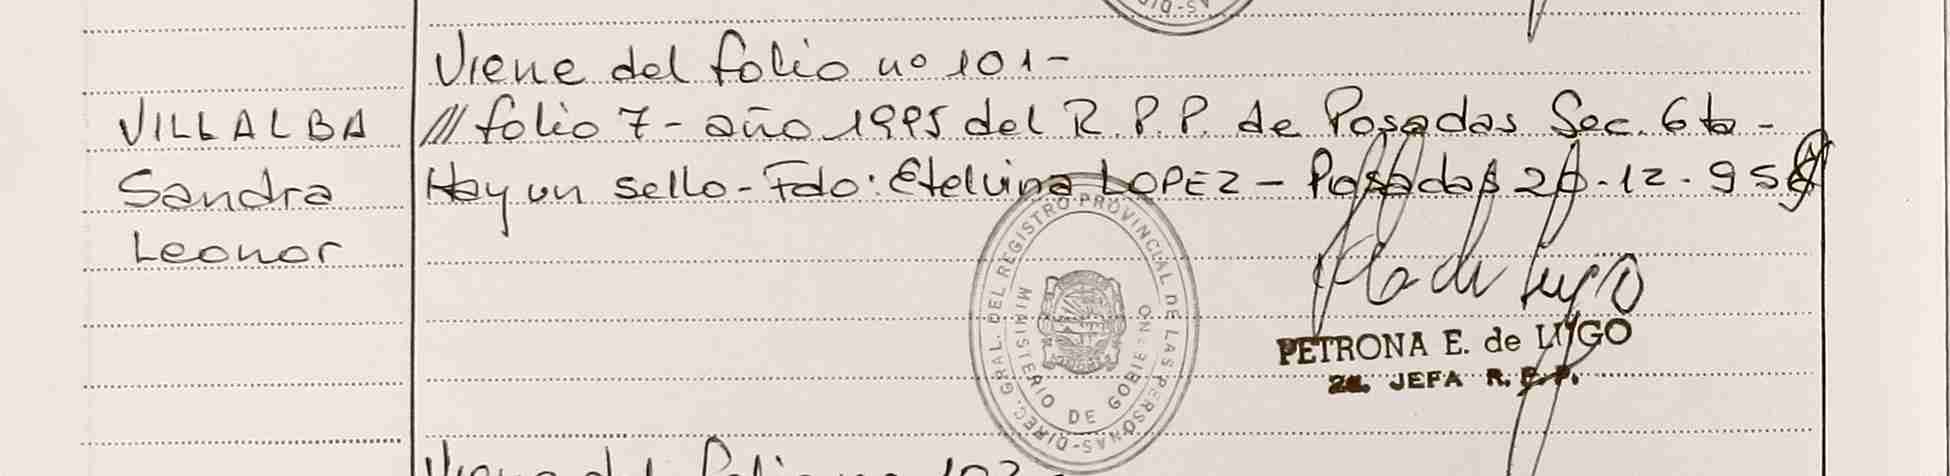 Viene del folio nº 101-
VILLALBA
Sandra
Leonor
/// folio 7- año 1995 del R.P.P. de Posadas Sec. 6ta-
Hay un sello- Fdo: Etelvina LOPEZ - Posadas 26-12-95
DIREC. GRAL. DEL REGISTRO PROVINCIAL DE LAS PERSONAS
MINISTERIO DE GOBIERNO
PETRONA E. de LUGO
2a. JEFA R.P.P.
Viene del folio nº 102